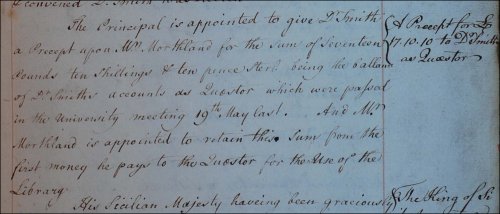 convened Dr. Smith
The Principal is appointed to give Dr. Smith
a Precept upon Mr. Morthland for the Sum of Seventeen
pounds ten Shillings & ten pence Sterl. being the ballance
of Dr. Smiths accounts as Quæstor which were passed
in the University meeting 19th. May last. And Mr.
Morthland is appointed to retain this Sum from the
first money he pays to the Quæstor for the Use of the
Library
His Sicilian Majesty haveing been graciously
A Precept for
17.10.10 to Dr. Smith
as Quæstor
The King of